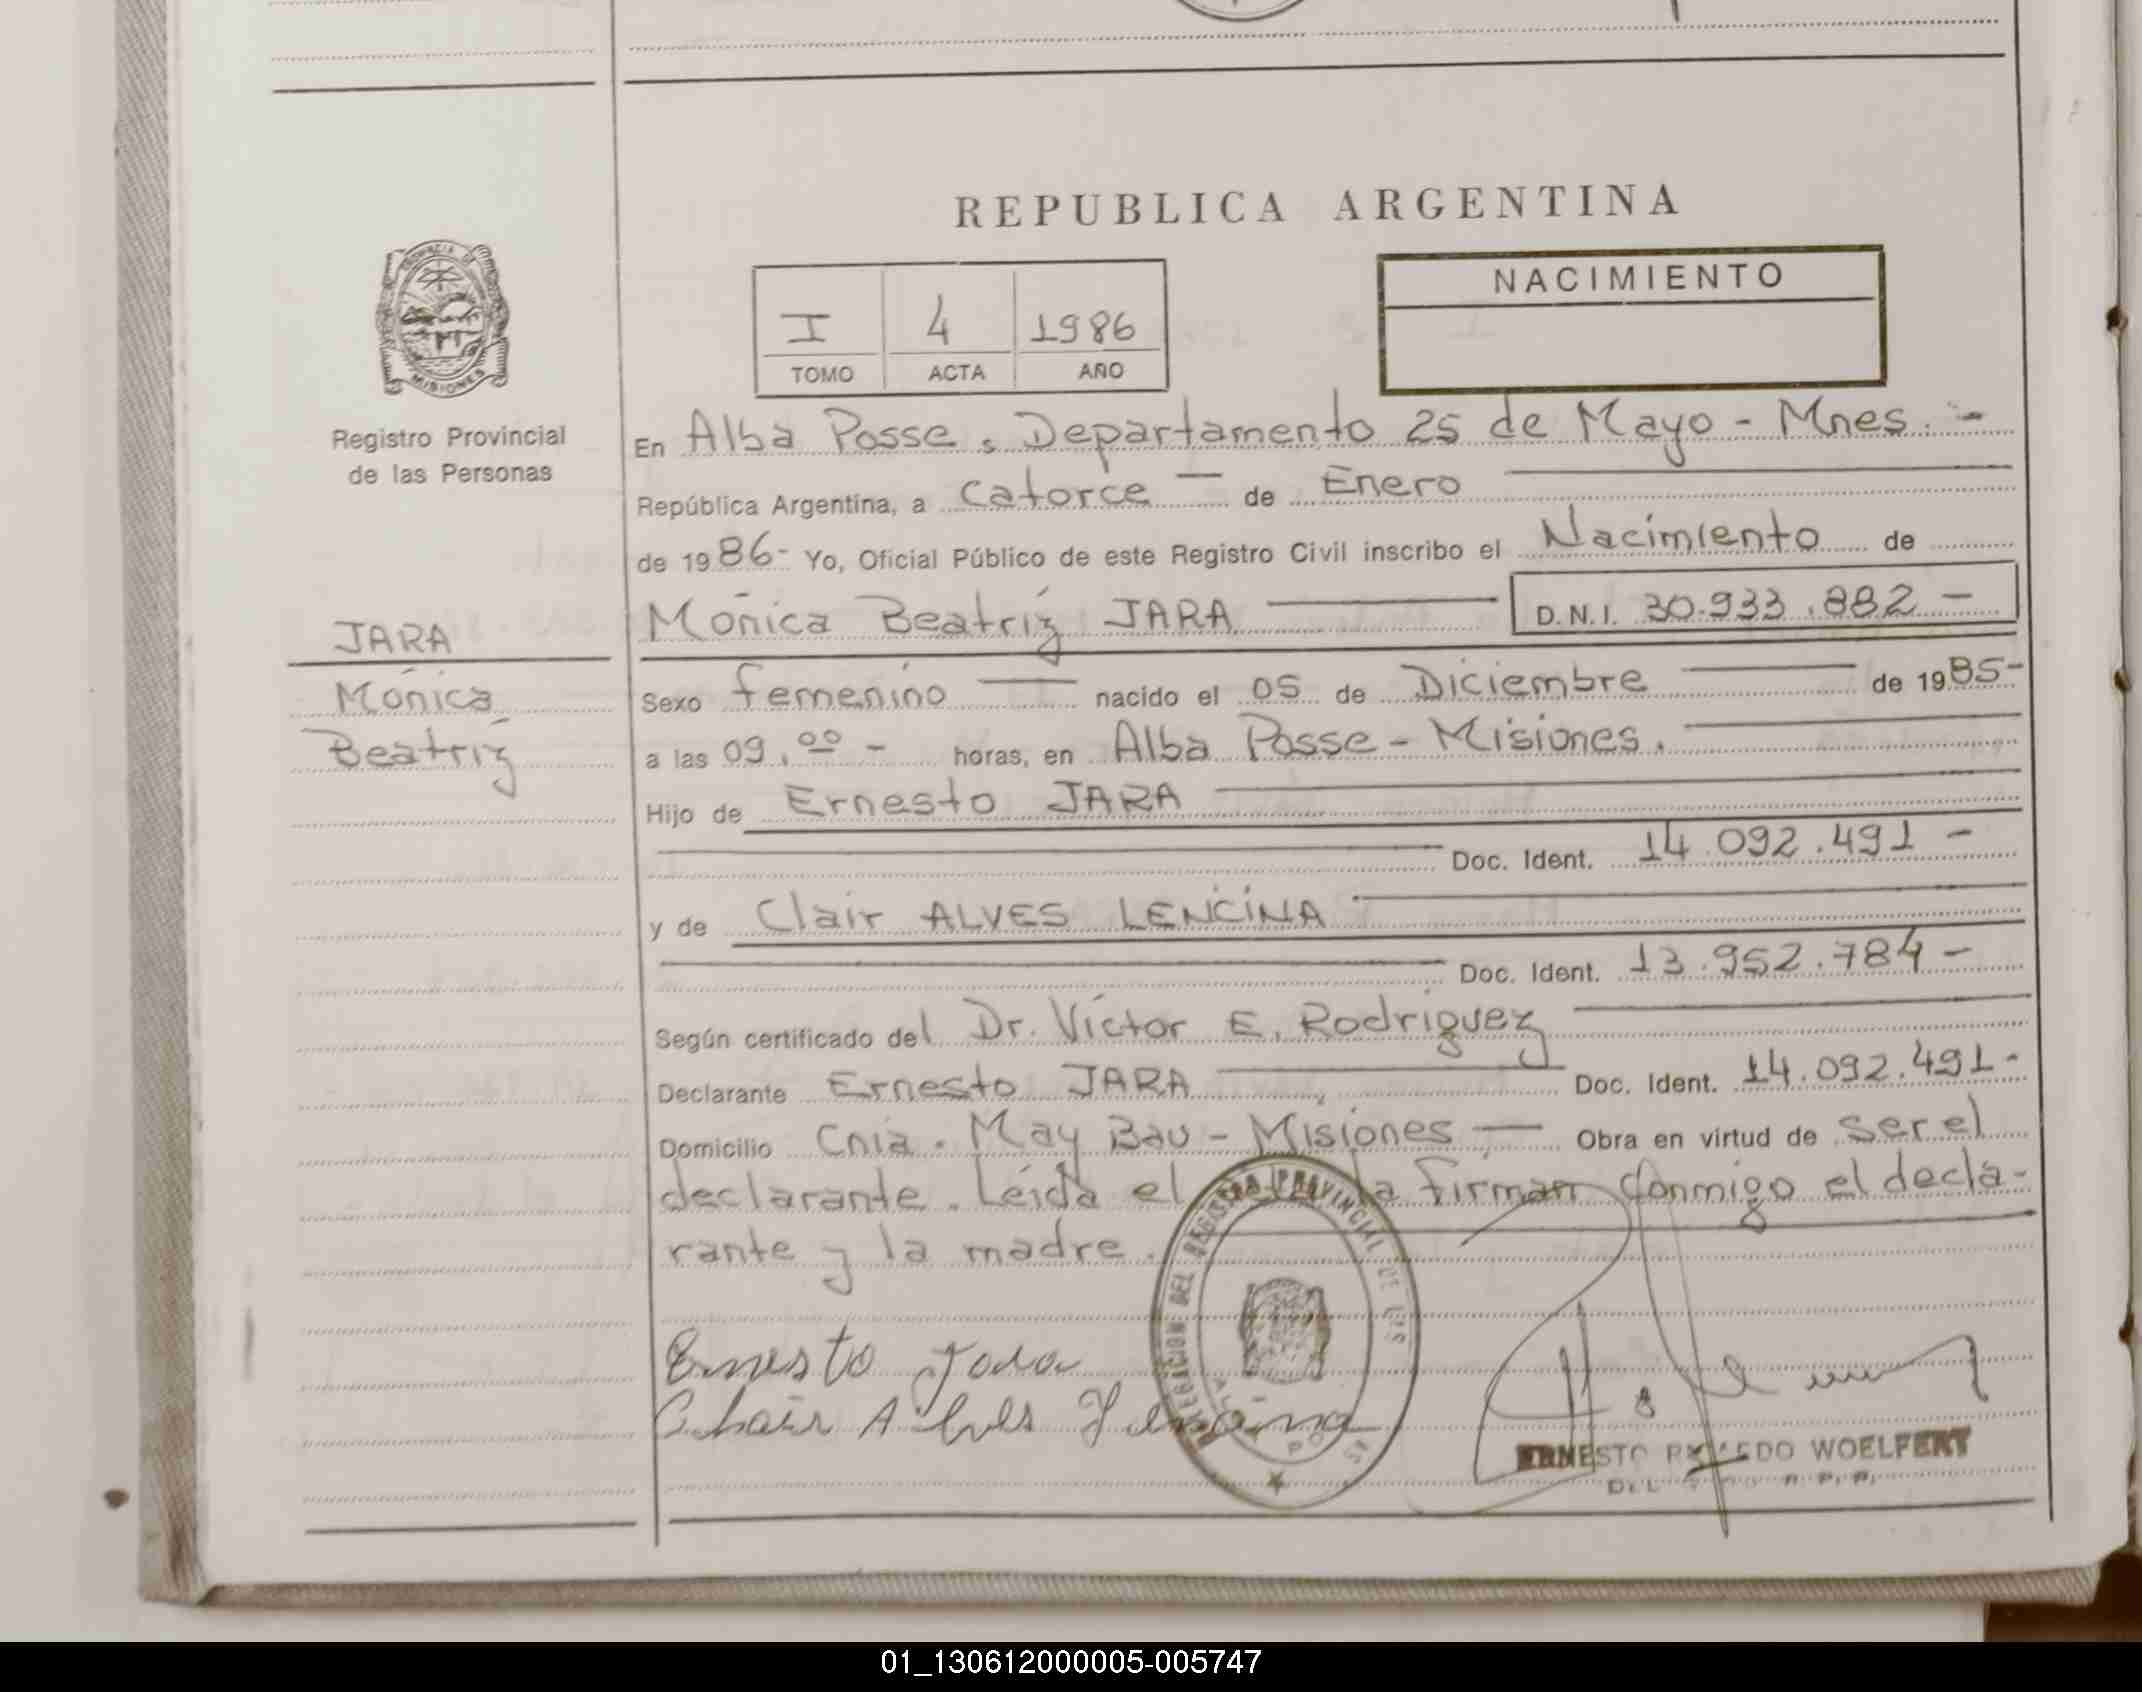 REPUBLICA ARGENTINA
PROVINCIA DE
MISIONES
Registro Provincial
de las Personas
I 4 1986
TOMO ACTA AÑO
NACIMIENTO
En Alba Posse, Departamento 25 de Mayo - Mnes. -
República Argentina, a catorce — de Enero
de 1986- Yo, Oficial Público de este Registro Civil inscribo el Nacimiento de
Mónica Beatríz JARA D.N.I. 30.933.882 -
JARA
Mónica
Beatríz
Sexo femenino nacido el 05 de Diciembre de 1985-
a las 09,00 - horas, en Alba Posse - Misiones.
Hijo de Ernesto JARA
Doc. Ident. 14.092.491 -
y de Clair ALVES LENCINA
Doc. Ident. 13.952.784 -
Según certificado del Dr. Víctor E. Rodríguez
Declarante Ernesto JARA Doc. Ident. 14.092.491-
Domicilio Cnia. May Bau - Misiones — Obra en virtud de ser el
declarante. Leída el firman conmigo el decla-
rante y la madre.
DELEGACION DEL REGISTRO PROVINCIAL DE LAS
Ernesto Jara
Alves
ERNESTO RICARDO WOELFERT
01_130612000005-005747